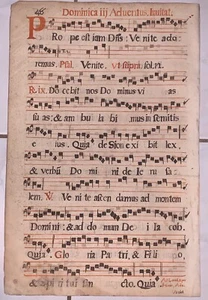 46 Dominica iij Adventus. Invitat.
Prope est iam Dñs: Venite ado-
remus. Psal. Venite.
R. ix. Docebit nos Dominus vi as
su as: & am bu la bi mus in semitis
e ius. Quia de Sion e xi bit lex,
& verbũ Do mi ni de Ie ru sa
lem. V. Veni te ascen damus ad montem
Domini: & ad domum De i Ia cob.
Quia. Glo ria Pa tri, & Fili o,
& Spi ri tui San cto. Quia.